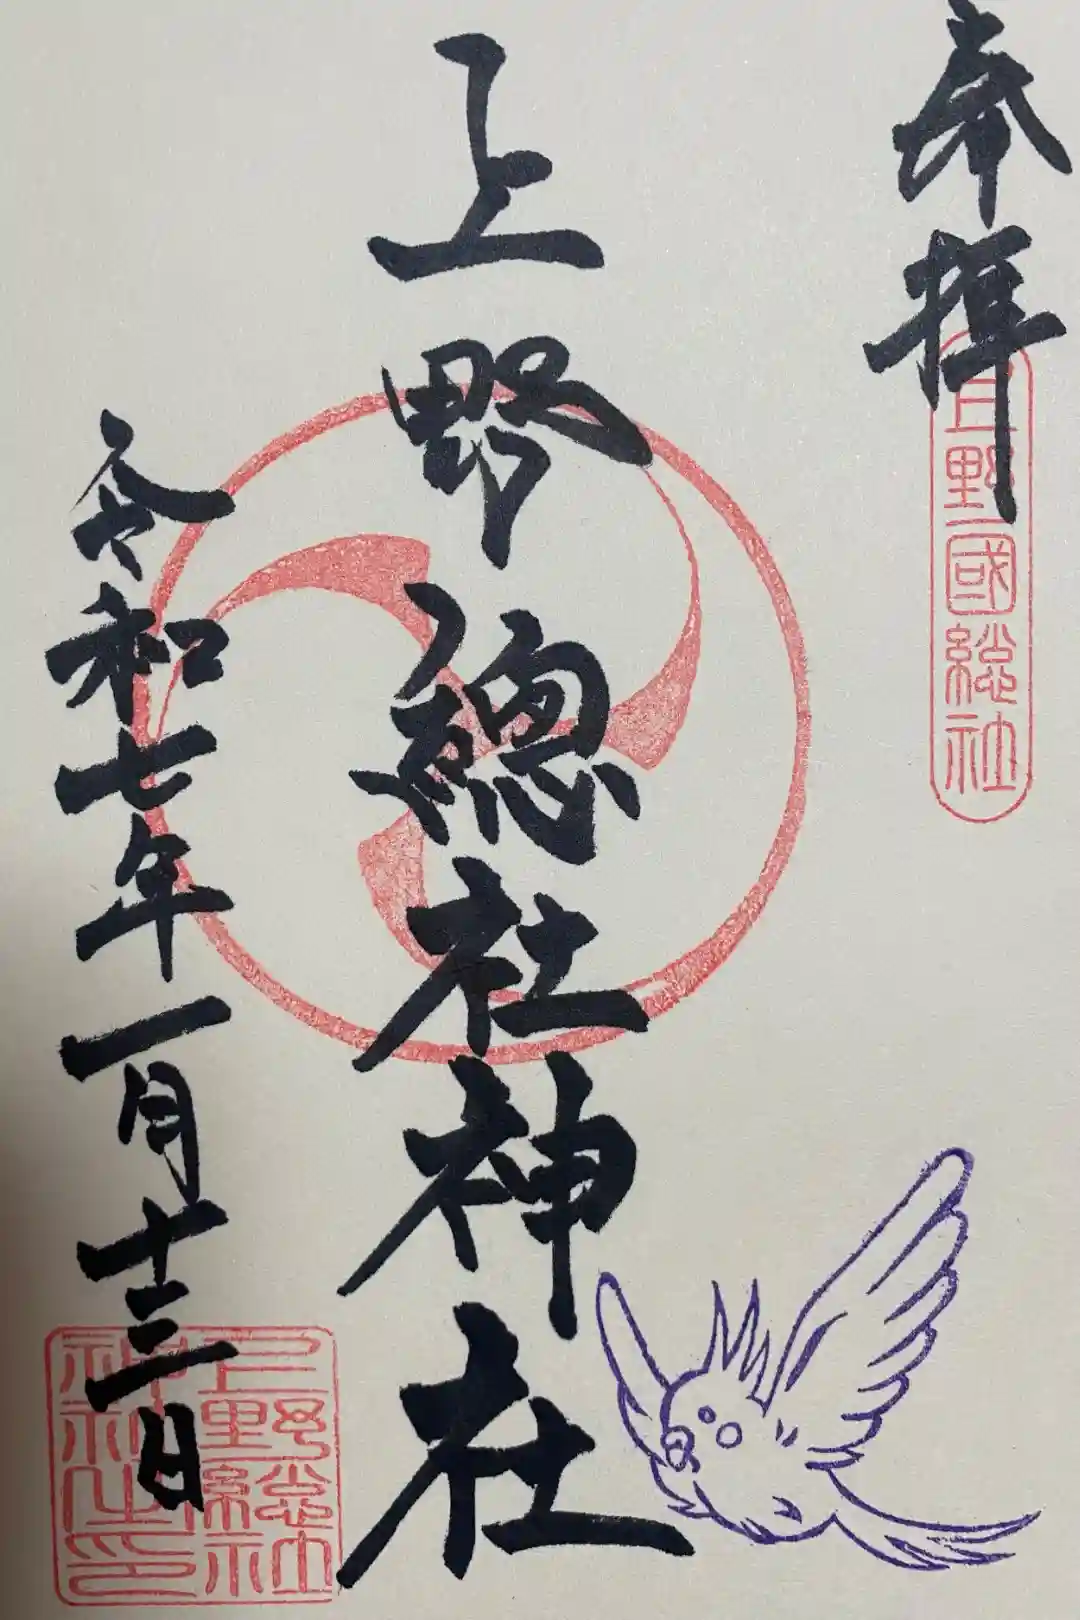 奉拝
上野國総社
上野總社神社
令和七年一月十三日
上野総社
神社之印